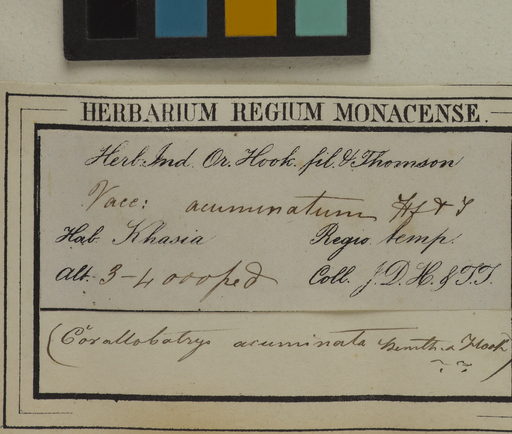 HERBARIUM REGIUM MONACENSE.
Herb. Ind. Or. Hook. fil. & Thomson
Vacc: acuminatum Hf & T
Hab. Khasia Regio temp.
Alt. 3-4000 ped Coll. J. D. H. & T. T.
(Corallobotrys acuminata Benth. & Hook)